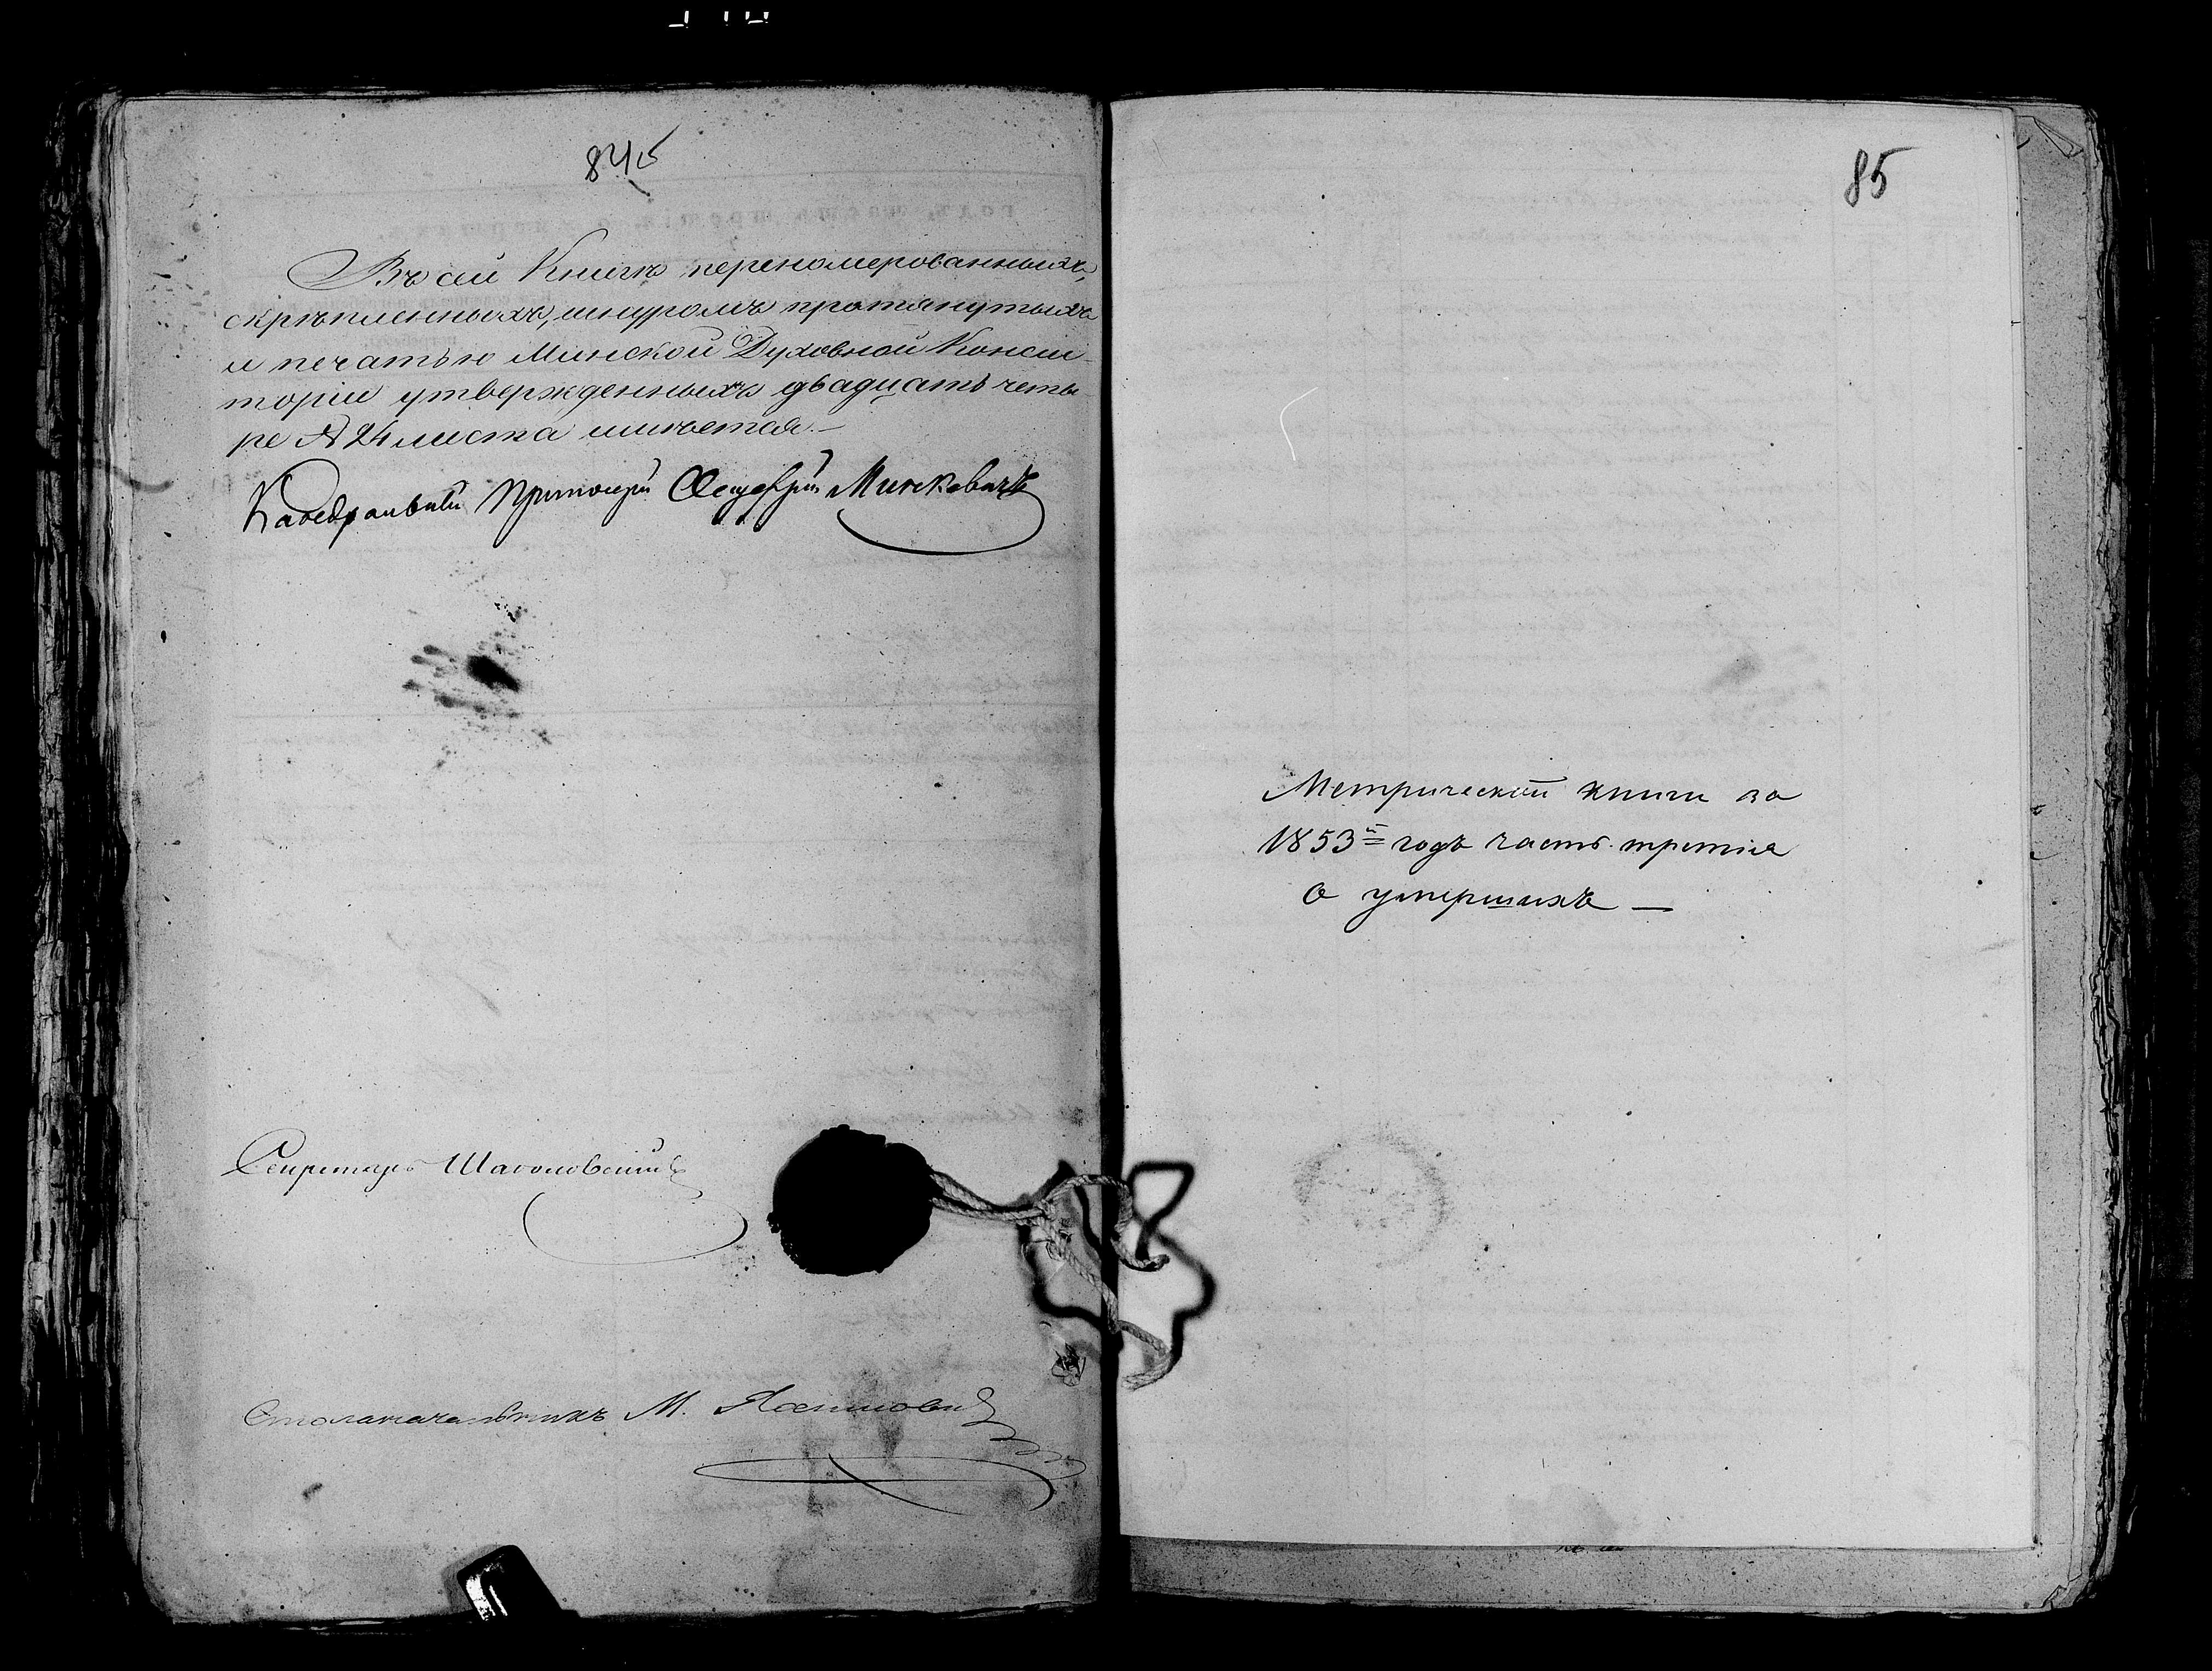 84 об
Въ сей Книгѣ перенумерованныхъ,
скрѣпленныхъ, шнуромъ протянутыхъ
и печатью Минской Духовной Конси-
сторіи утвержденныхъ двадцать четы-
ре № 24 листа имѣется.—
Каѳедральный Протоіерей Минкевичъ
Секретарь
Столоначальникъ М.
85
Метрической книги за
1853й годъ часть третія
о умершихъ —